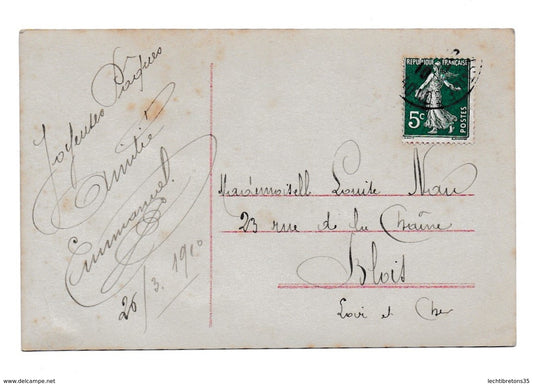 Joyeuses Pâques
Amitié
Emmanuel.
26/3. 1910
REPUBLIQUE FRANÇAISE
5c
POSTES
Mademoisell Louise
23 rue de la Chaîne
Blois
Loir et Cher
https://www.delcampe.net
lechtibretons35